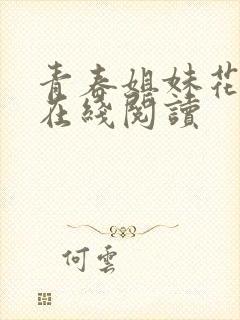 青春姐妹花
在綫閱讀
何雲